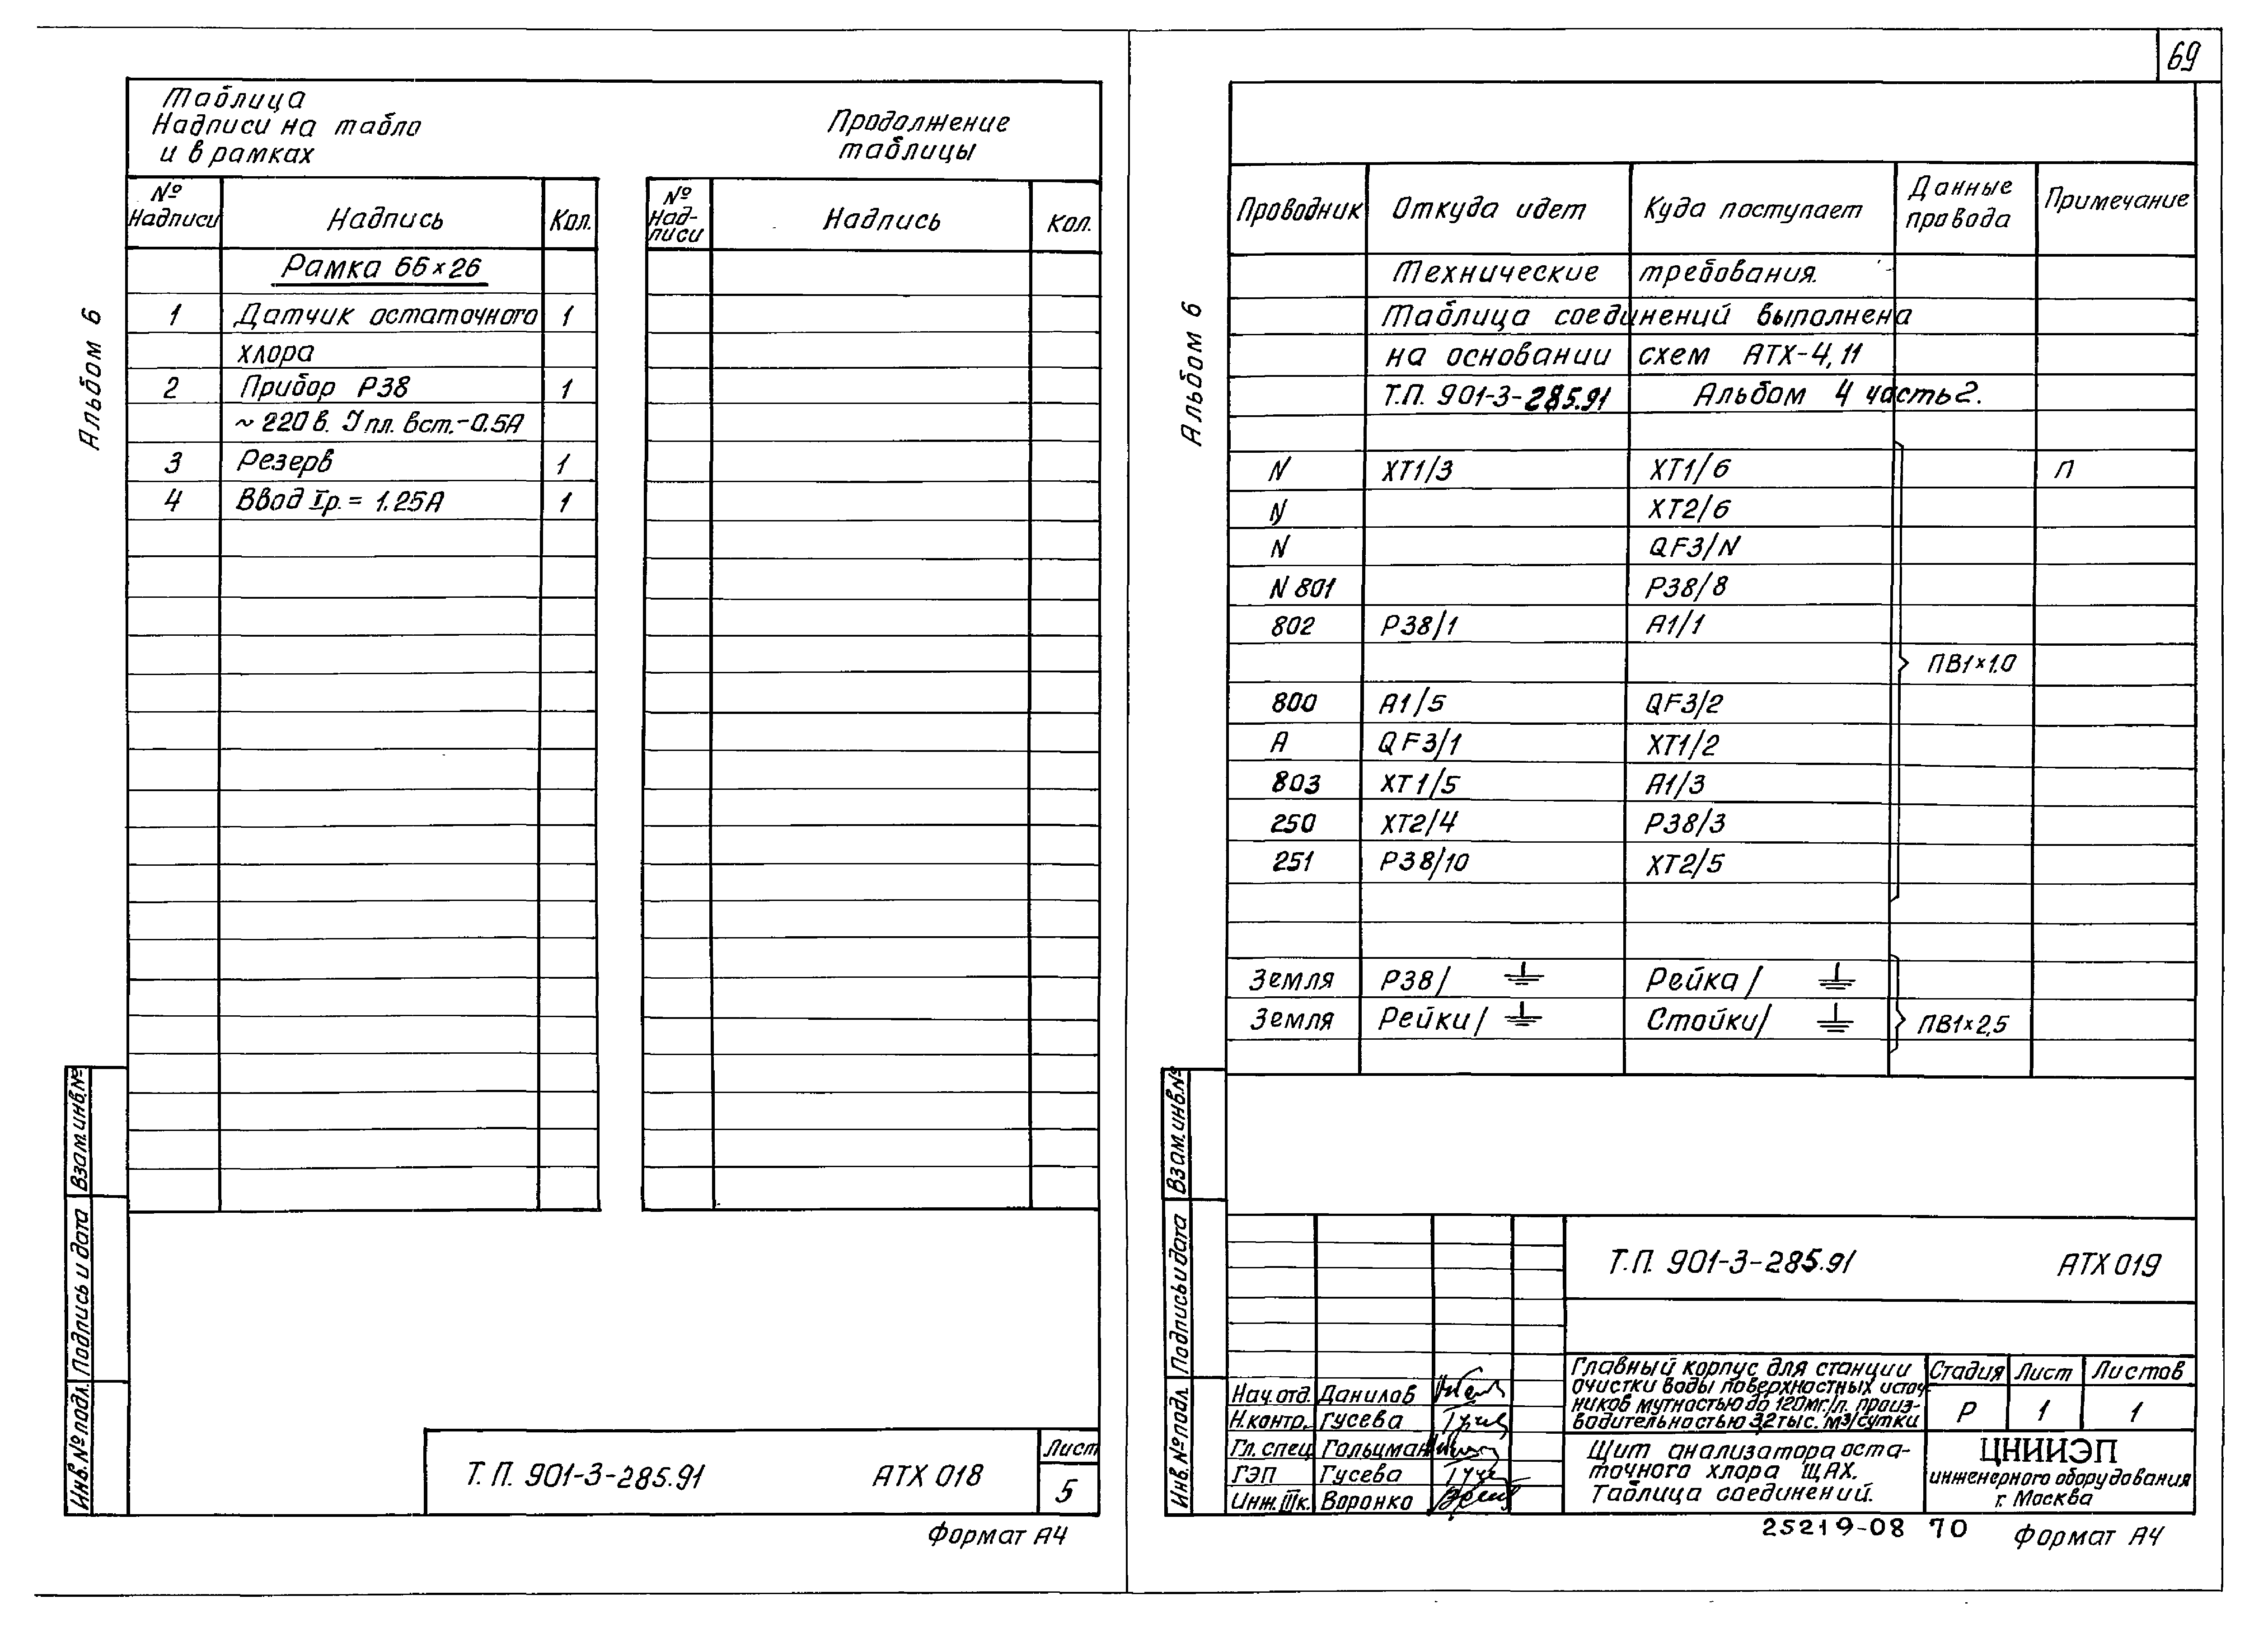 69
Таблица
Надписи на табло
и в рамках
Продолжение
таблицы
№ Надписи Надпись Кол.
№ Над-писи Надпись Кол.
Рамка 66×26
1 Датчик остаточного 1
хлора
2 Прибор Р38 1
~ 220 в. I пл. вст.-0.5А
3 Резерв 1
4 Ввод Iр. = 1.25А 1
Альбом 6
Взам.инв.№
Подпись и дата
Инв.№ подл.
Т.П. 901-3-285.91 АТХ 018
Лист
5
Формат А4
Альбом 6
Проводник Откуда идет Куда поступает Данные провода Примечание
Технические требования.
Таблица соединений выполнена
на основании схем АТХ-4,11
Т.П. 901-3-285.91 Альбом 4 часть 2.
N ХТ1/3 ХТ1/6 П
N ХТ2/6
N QF3/N
N 801 Р38/8
802 Р38/1 А1/1
ПВ1×1.0
800 А1/5 QF3/2
А QF3/1 ХТ1/2
803 ХТ1/5 А1/3
250 ХТ2/4 Р38/3
251 Р38/10 ХТ2/5
Земля Р38/ Рейка/
Земля Рейки/ Стойки/ ПВ1×2,5
Взам.инв.№
Подпись и дата
Инв.№ подл.
Т.П. 901-3-285.91 АТХ 019
Главный корпус для станции
очистки воды поверхностных источ-
ников мутностью до 120мг/л. произ-
водительностью 3,2 тыс. м3/сутки
Стадия Лист Листов
Р 1 1
Нач.отд. Данилов
Н.контр. Гусева
Гл.спец Гольцман
ГЭП Гусева
Инж.IIIк. Воронко
Щит анализатора оста-
точного хлора ЩАХ.
Таблица соединений.
ЦНИИЭП
инженерного оборудования
г. Москва
25219-08 70
Формат А4